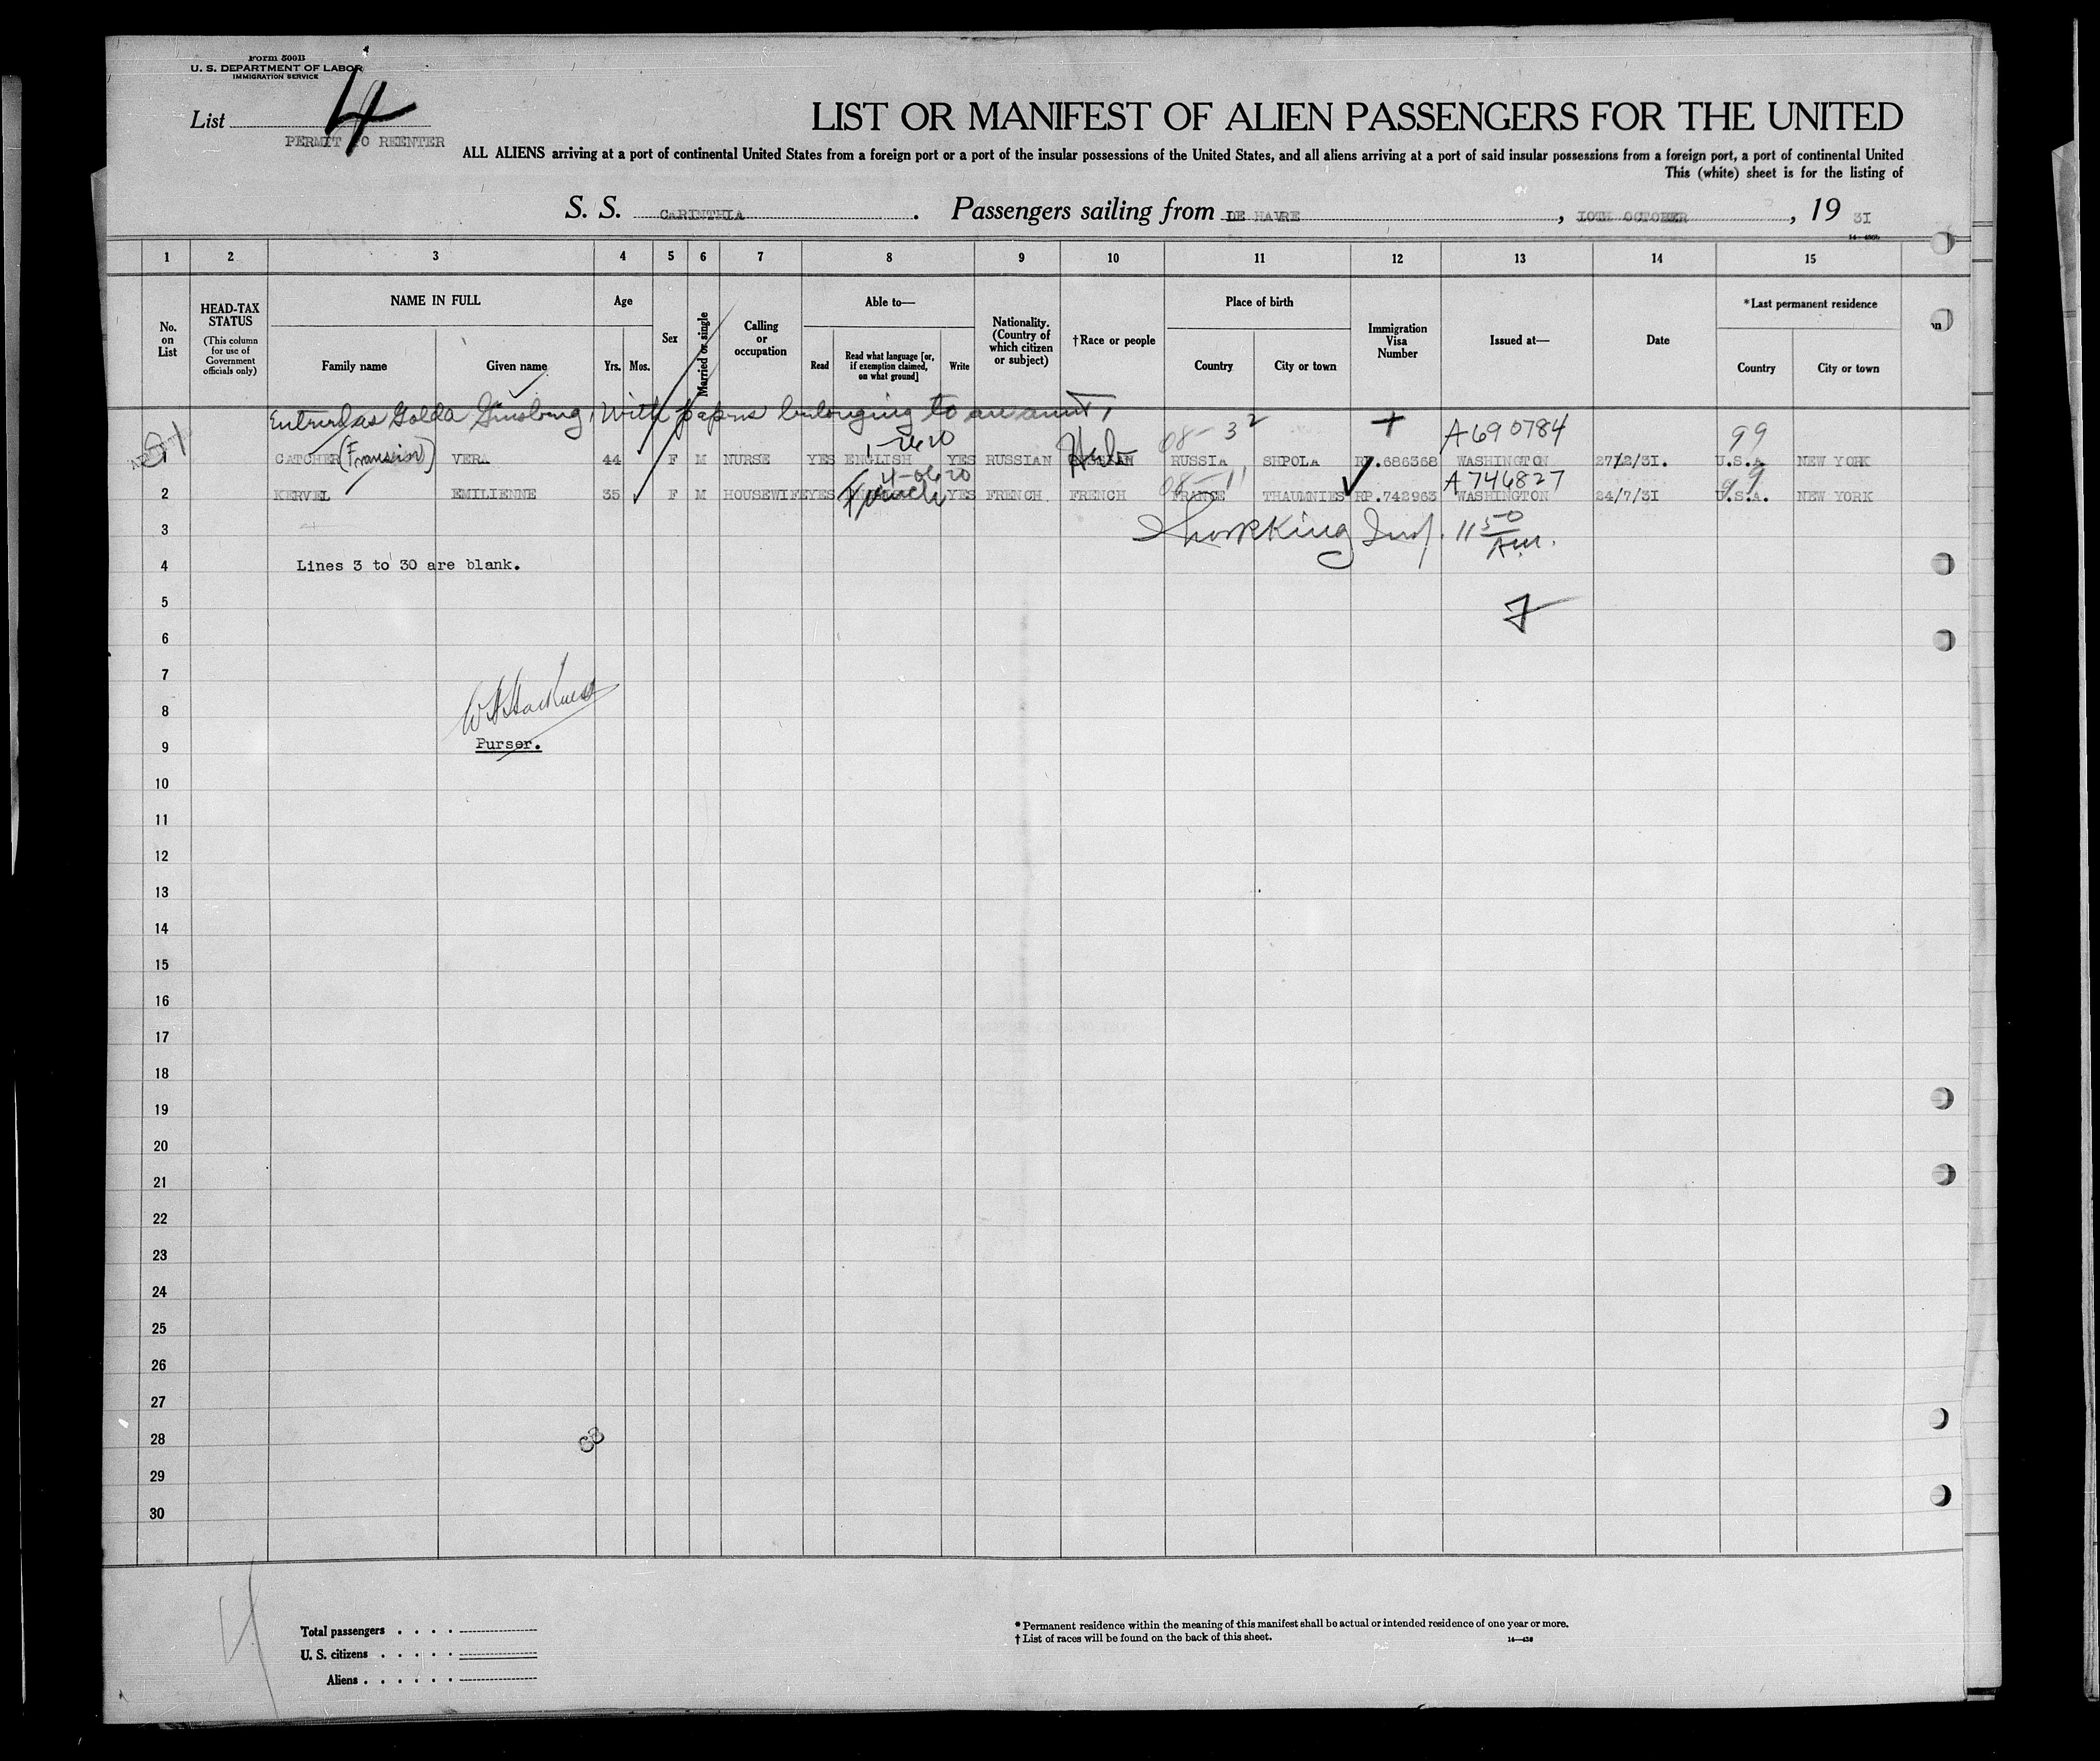 Form 500B
U. S. DEPARTMENT OF LABOR
IMMIGRATION SERVICE
List 4
PERMIT TO REENTER
LIST OR MANIFEST OF ALIEN PASSENGERS FOR THE UNITED
ALL ALIENS arriving at a port of continental United States from a foreign port or a port of the insular possessions of the United States, and all aliens arriving at a port of said insular possessions from a foreign port, a port of continental United
This (white) sheet is for the listing of
S. S. CaRINTHIA . Passengers sailing from DE HAVRE , 10TH OCTOBER , 19 3I
1 2 3 4 5 6 7 8 9 10 11 12 13 14 15
No. on List
HEAD-TAX STATUS
(This column for use of Government officials only)
NAME IN FULL
Family name Given name
Age
Yrs. Mos.
Sex
Married or single
Calling or occupation
Able to—
Read Read what language [or, if exemption claimed, on what ground] Write
Nationality. (Country of which citizen or subject)
†Race or people
Place of birth
Country City or town
Immigration Visa Number
Issued at—
Date
*Last permanent residence
Country City or town
Entered as Golda Ginsberg, with papers belonging to an aunt,
08- 32 + A690784 99
1-2620
CATCHER VERA 44 F M NURSE YES ENGLISH YES RUSSIAN Heb RUSSIA SHPOLA RP.686368 WASHINGTON 27/2/31. U.S.A. NEW YORK
4-0620 08-11 A746827 99
2 KERVEL EMILIENNE 35 F M HOUSEWIFE YES French YES FRENCH. FRENCH FRANCE THAUMNIES RP.742963 WASHINGTON 24/7/3I U.S.A. NEW YORK
3 King Insp. 11 50 Am.
4 Lines 3 to 30 are blank.
5
6
7
8
9 Purser.
10
11
12
13
14
15
16
17
18
19
20
21
22
23
24
25
26
27
28
29
30
4
Total passengers . . . .
U. S. citizens . . . . .
Aliens . . . . . .
* Permanent residence within the meaning of this manifest shall be actual or intended residence of one year or more.
† List of races will be found on the back of this sheet.